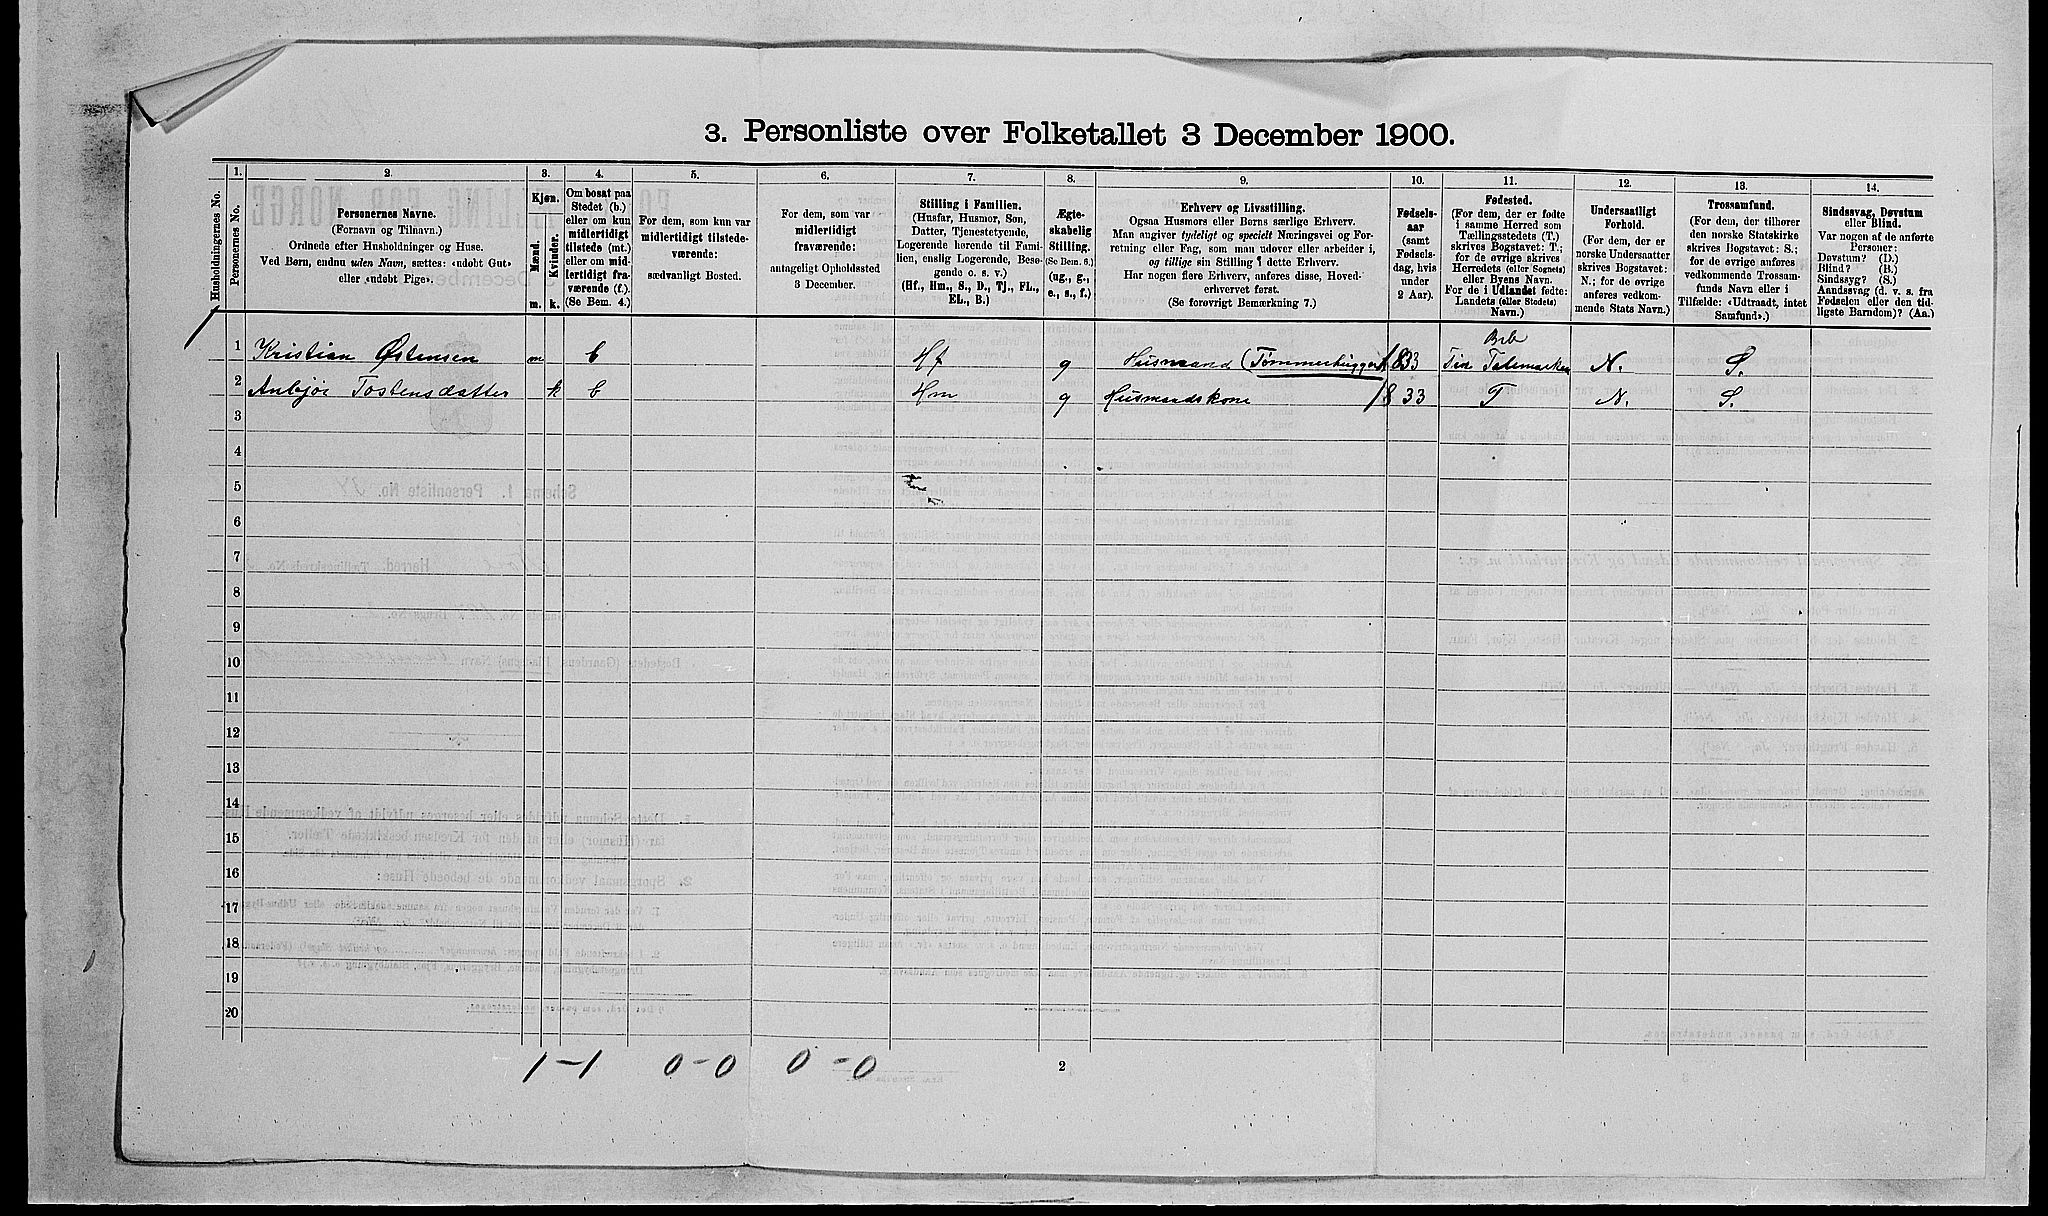 3. Personliste over Folketallet 3 December 1900.
Husholdningernes No.
1.
Personernes No.
2.
Personernes Navne.
(Fornavn og Tilnavn.)
Ordnede efter Husholdninger og Huse.
Ved Børn, endnu uden Navn, sættes: «udøbt Gut»
eller «udøbt Pige».
3.
Kjøn.
Mænd.
m.
Kvinder.
k.
4.
Om bosat paa
Stedet (b.)
eller om kun
midlertidigt
tilstede (mt.)
eller om mid-
lertidigt fra-
værende (f.).
(Se Bem. 4.)
5.
For dem, som kun var
midlertidigt tilstede-
værende:
sædvanligt Bosted.
6.
For dem, som var
midlertidigt
fraværende:
antageligt Opholdssted
3 December.
7.
Stilling i Familien.
(Husfar, Husmor, Søn,
Datter, Tjenestetyende,
Logerende hørende til Fami-
lien, enslig Logerende, Besø-
gende o. s. v.)
(Hf., Hm., S., D., Tj., FL.,
EL., B.)
8.
Ægte-
skabelig
Stilling.
(Se Bem. 6.)
(ug., g.,
e., s., f.)
9.
Erhverv og Livsstilling.
Ogsaa Husmors eller Børns særlige Erhverv.
Man angiver tydeligt og specielt Næringsvei og For-
retning eller Fag, som man udøver eller arbeider i,
og tillige sin Stilling i dette Erhverv.
Har nogen flere Erhverv, anføres disse, Hoved-
erhvervet først.
(Se forøvrigt Bemærkning 7.)
10.
Fødsels-
aar
(samt
Fødsels-
dag, hvis
under
2 Aar).
11.
Fødested.
(For dem, der er fødte
i samme Herred som
Tællingsstedets (T.)
skrives Bogstavet: T.;
for de øvrige skrives
Herredets (eller Sognets)
eller Byens Navn.
For de i Udlandet fødte:
Landets (eller Stedets)
Navn.)
12.
Undersaatligt
Forhold.
(For dem, der er
norske Undersaatter
skrives Bogstavet:
N.; for de øvrige
anføres vedkom-
mende Stats Navn.)
13.
Trossamfund.
(For dem, der tilhører
den norske Statskirke
skrives Bogstavet: S.;
for de øvrige anføres
vedkommende Trossam-
funds Navn eller i
Tilfælde: «Udtraadt, intet
Samfund».)
14.
Sindssvag, Døvstum
eller Blind.
Var nogen af de anførte
Personer:
Døvstum? (D.)
Blind? (B.)
Sindssyg? (S.)
Aandssvag (d. v. s. fra
Fødselen eller den tid-
ligste Barndom)? (Aa.)
1 Kristian Østensen m b Hf g Husmand (Tømmerhugger) 1833 Tin Telemarken N. S.
2 Anbjør Tostensdatter k b Hm g Husmandskone 1833 T N. S.
3
4
5
6
7
8
9
10
11
12
13
14
15
16
17
18
19
20
1 - 1 0 - 0 0 - 0
2